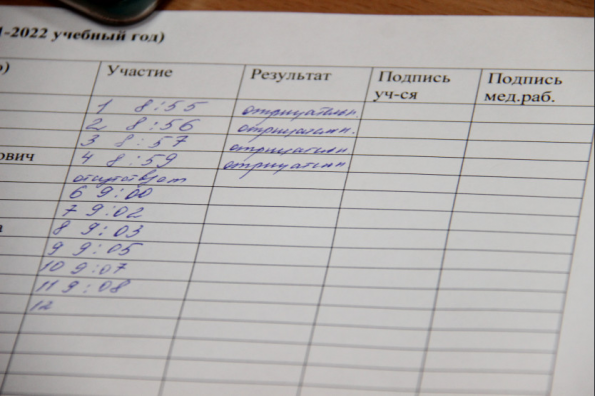 1-2022 учебный год)
о) Участие Результат Подпись уч-ся Подпись мед.раб.
1 8:55 отрицательн.
2 8:56 отрицательн.
3 8:57 отрицательн
ович 4 8:59 отрицательн
отсутствует
6 9:00
7 9:02
8 9:03
9 9:05
10 9:07
11 9:08
12